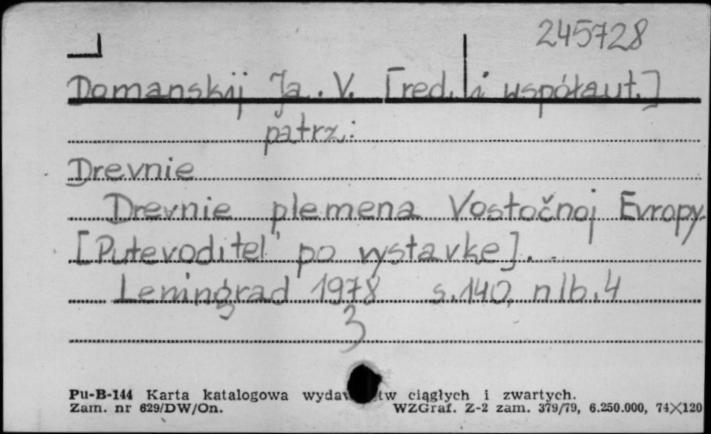 245728
Domanskij Ja. V. [red. i współaut.]
patrz:
Drevnie
Drevnie plemena Vostočnoj Evropy.
[Putevoditel' po vystavke].
Leningrad 1978 s.140, nlb.4
3
Pu-B-144 Karta katalogowa ciągłych i zwartych.
Zam. nr 629/DW/On. WZGraf. Z-2 zam. 379/79, 6.250.000, 74×120